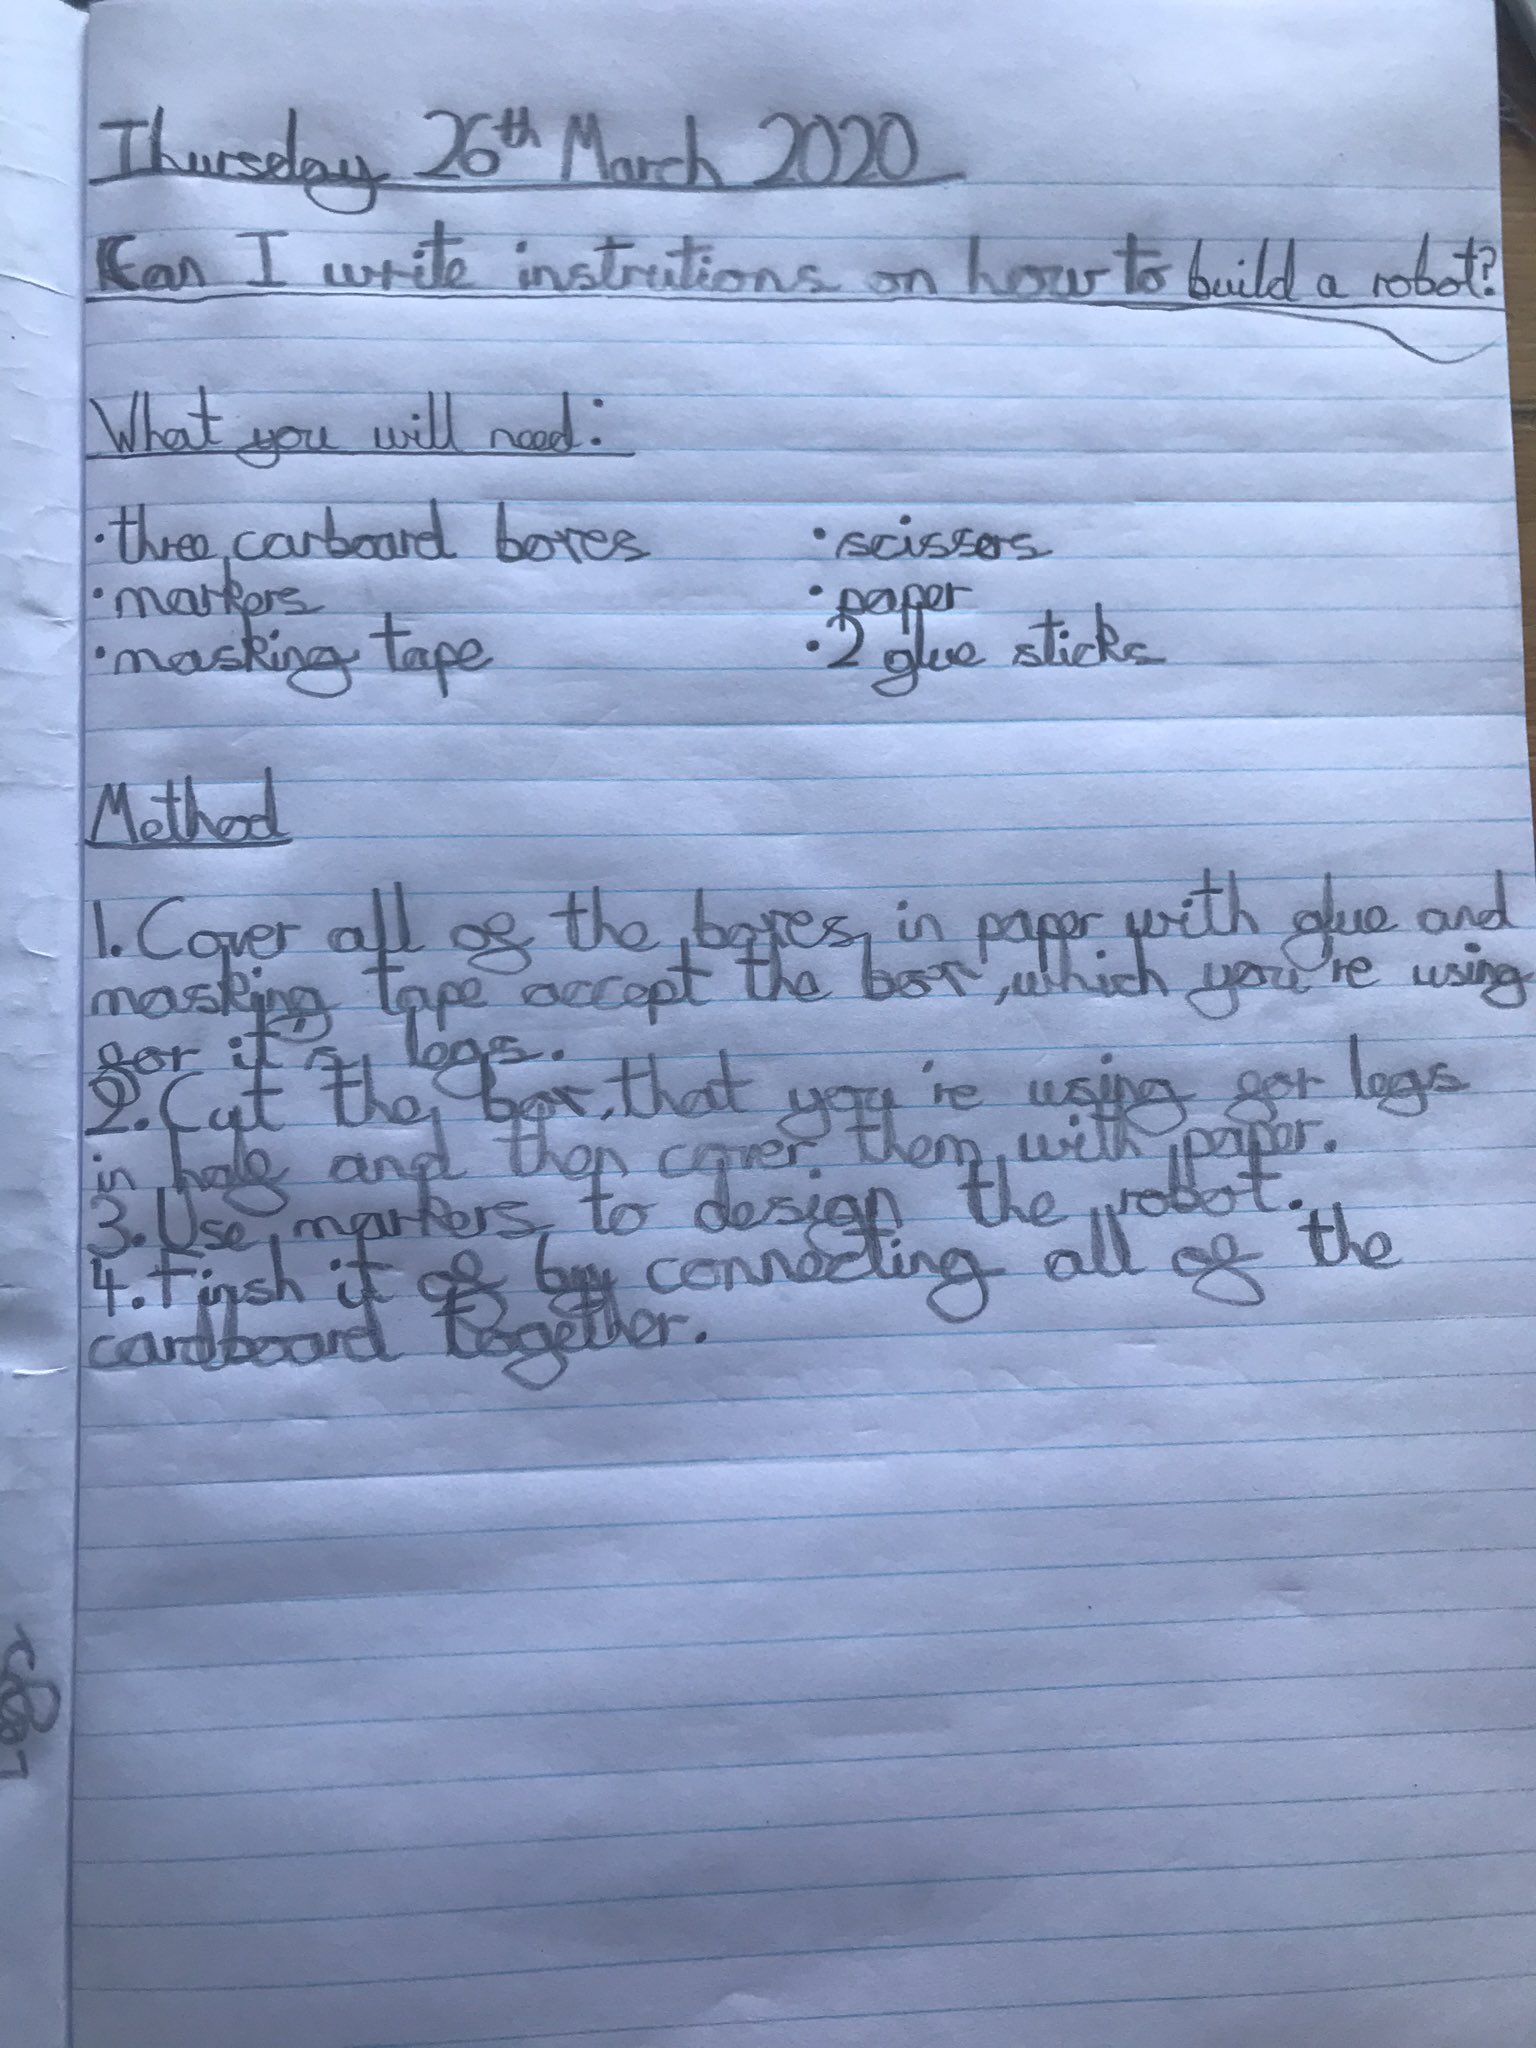 Thursday 26th March 2020
Can I write instrutions on how to build a robot?
What you will need:
• three carboard boxes
• markers
• masking tape
• scissors
• paper
• 2 glue sticks
Method
1. Cover all of the boxes in paper with glue and
masking tape accept the box, which you're using
for it's legs.
2. Cut the box, that you're using for legs
in half and then cover them with paper.
3. Use markers to design the robot.
4. Finsh it of by connecting all of the
cardboard together.